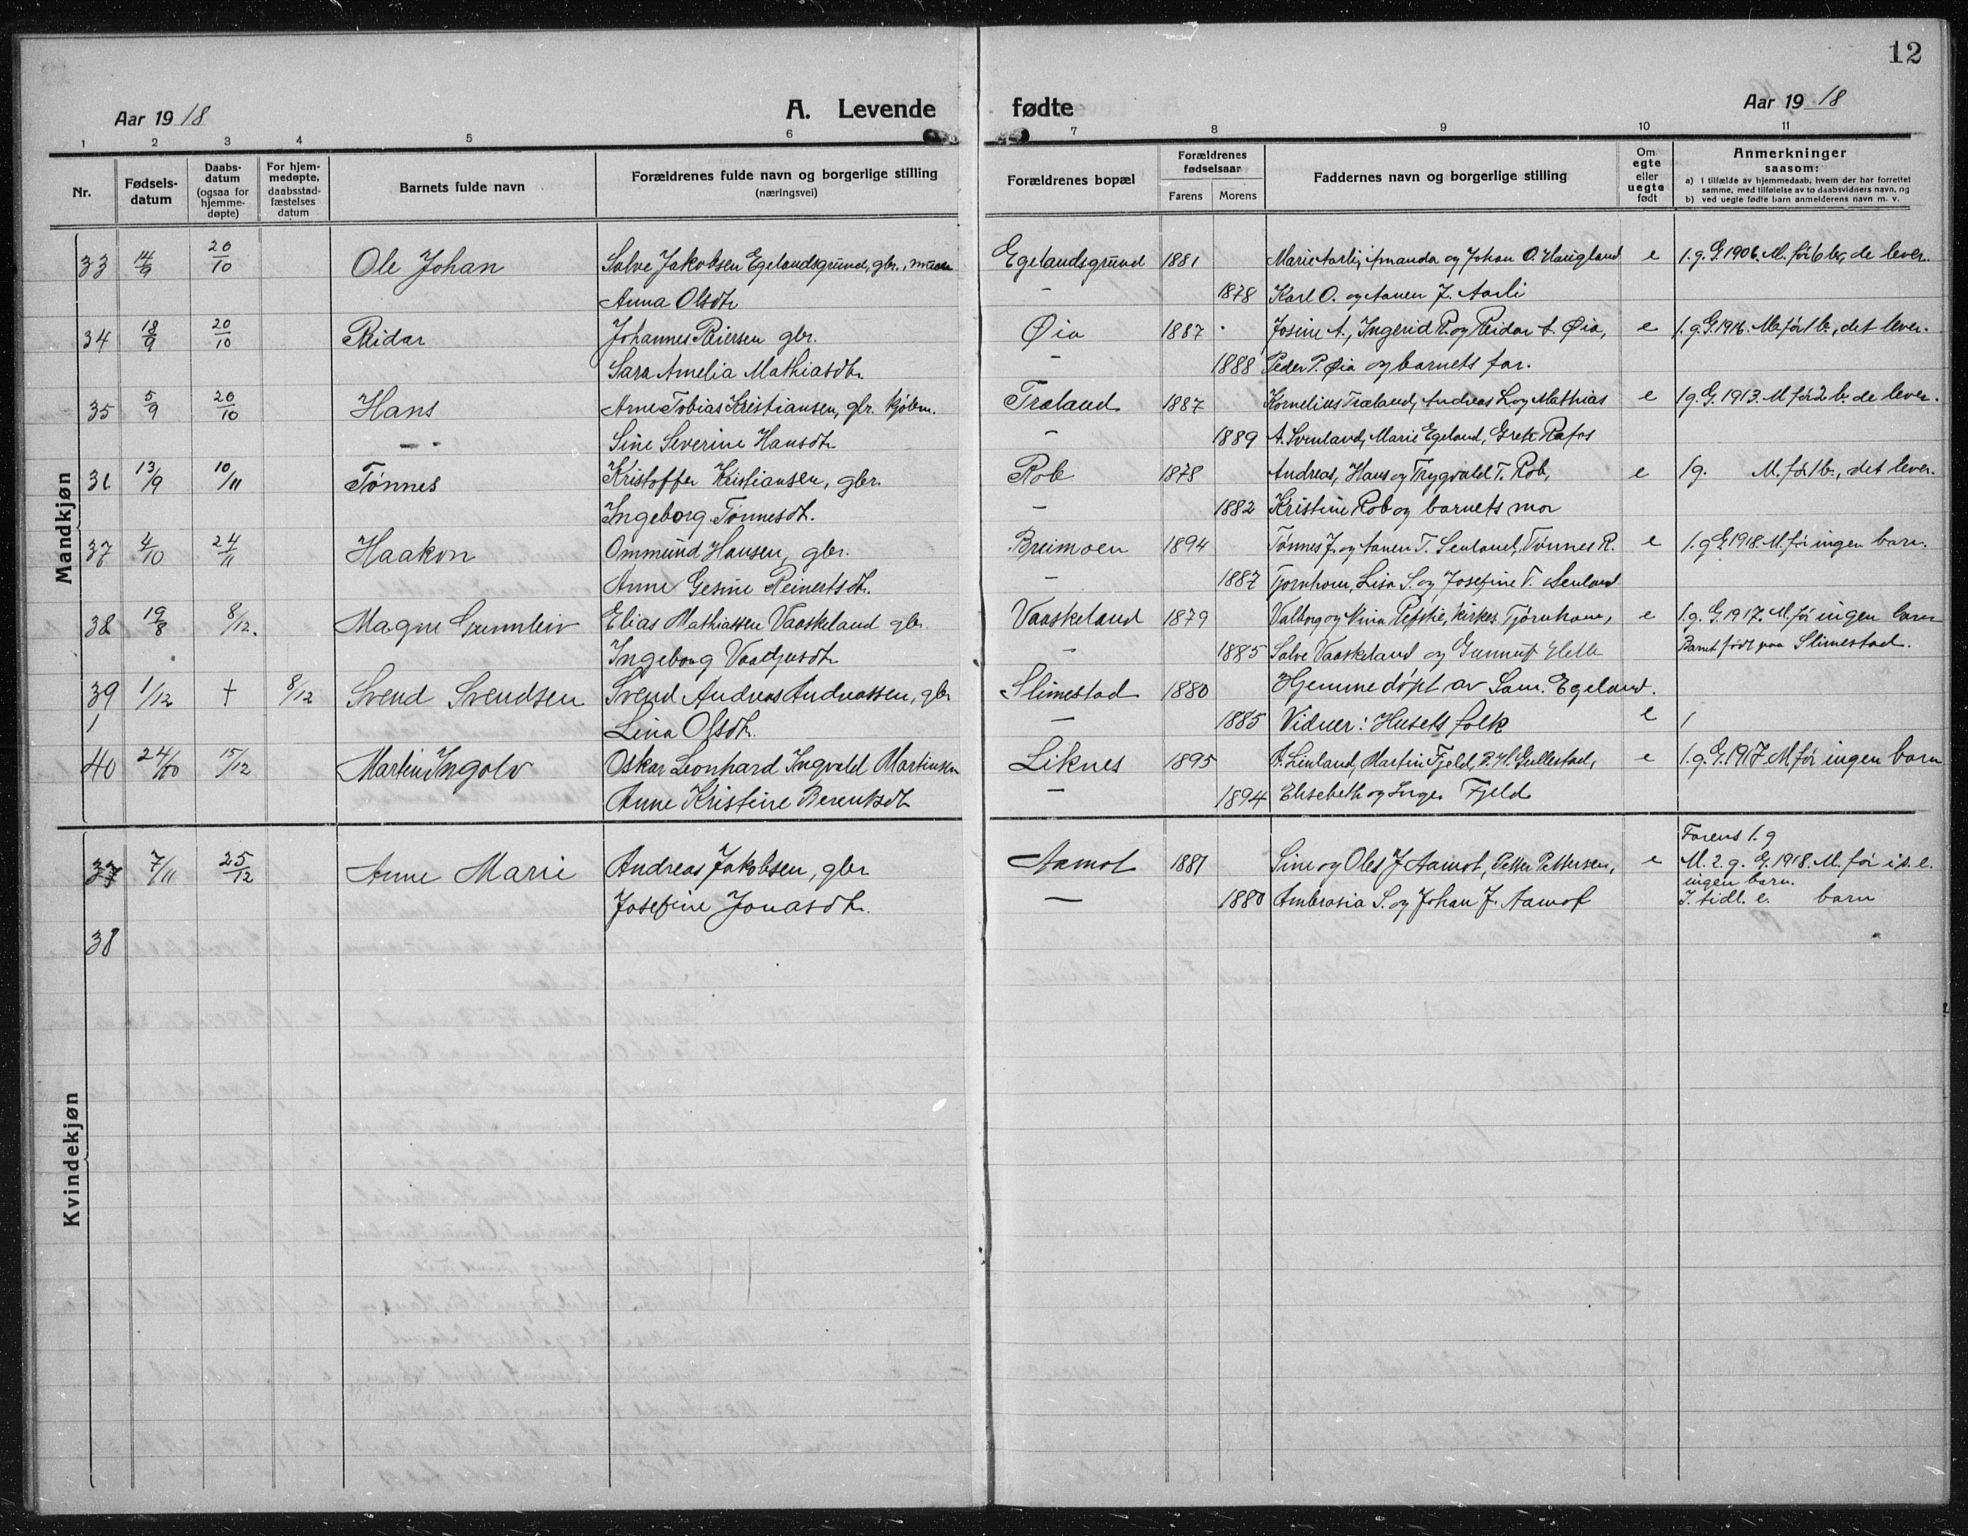 12
Aar 1918 A. Levende fødte Aar 1918
1 2 3 4 5 6 7 8 9 10 11
Nr.
Fødsels-
datum
Daabs-
datum
(ogsaa for
hjemme-
døpte)
For hjem-
medøpte,
daabsstad-
fæstelses
datum
Barnets fulde navn
Forældrenes fulde navn og borgerlige stilling
(næringsvei)
Forældrenes bopæl
Forældrenes
fødselsaar
Farens Morens
Faddernes navn og borgerlige stilling
Om
egte
eller
uegte
født
Anmerkninger
saasom:
a) i tilfælde av hjemmedaab, hvem der har forrettet
samme, med tilføielse av to daabsvidners navn, og
b) ved uegte fødte barn anmelderens navn m. v.
Mandkjøn
33 14/9 20/10 Ole Johan Salve Jakobsen Egelandsgrund, gbr., murer Egelandsgrund 1881 Marie Aarli, Amanda og Johan O. Haugland e 1. g. G. 1906. M. før 6 b., de lever.
Anna Olsdtr. - 1878 Karl O. og Aanen J. Aarli
34 18/9 20/10 Reidar Johannes Reiersen gbr. Øia 1887 Josine A., Ingerid R. og Reidar A. Øia, e 1. g. G. 1916. M. før 1 b., det lever.
Sara Amelia Mathiasdtr. 1888 Peder P. Øia og barnets far.
35 5/9 20/10 Hans Arne Tobias Kristiansen, gbr. Træland 1887 Kornelius Træland, Andreas L. og Mathias e 1 g. G. 1913. M. før 2 b. de lever.
- Sine Severine Hansdtr. - 1889 A. Svenland, Marie Egeland, Grete Rafos
36 13/9 10/11 Tønnes Kristoffer Kristiansen, gbr. Rob 1878 Andreas, Hans og Trygvald T. Rob, e 1 g. M. før 1 b., det lever.
Ingeborg Tønnesdtr. - 1882 Kristine Rob og barnets mor
37 4/10 24/11 Haakon Ommund Hansen, gbr. Breimoen 1894 Tønnes J. og Aanen T. Senland, Tønnes R. e 1. g. G. 1918. M. før ingen barn.
Anne Gesine Reinertsdtr. - 1887 Tjørnhom, Lisa S. og Josefine T. Senland
38 19/8 8/12. Magne Gunnleiv Elias Mathiassen Vaaskeland gbr. Vaaskeland 1879 Valborg og Nina Refstie, kirkes. Tjørnhom, e 1. g. G. 1917. M. før ingen barn
Ingeborg - 1885 Salve Vaaskeland og Gunnuf Helle Barnet født paa Slimestad.
39 1/12 + 8/12 Svend Svendsen Svend Andreas Andreassen, gbr Slimestad 1880 Hjemmedøpt av Sam. Egeland.
1 Lina Olsdtr. - 1885 Vidner: Husets folk e 1
40 24/10 15/12 Martin Ingolv Oskar Leonhard Ingvald Martinsen Liknes 1895 A. Linland, Martin Fjeld, P. H. Gullestad, e 1. g. G. 1917 M. før ingen barn
Anne Kristine Berentsdtr - 1894 Elisebeth og Inger Fjeld
Kvindekjøn
37 7/11 25/12 Anne Marie Andreas Jakobsen, gbr Aamot 1881 Sine og Oles J. Aamot, Petter Pettersen, e Farens 1. g
M. 2. g. G. 1918. M. før i s. e.
ingen barn.
Josefine Jonasdtr. - 1880 Ambrosia S. og Johan J. Aamot I tidl. e. barn
38